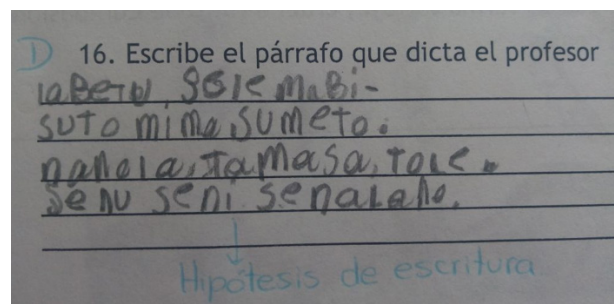 D 16. Escribe el párrafo que dicta el profesor
laBeTu gole maBi-
suto mima, sumeto.
nanola, Tamasa, Tole.
Senu seni senalano.
Hipótesis de escritura